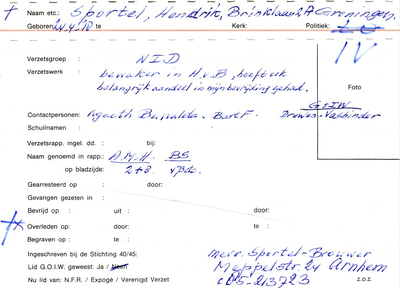 Naam etc.: Sportel, Hendrik, Brinklaan 2A Groningen.
Geboren: 24.4.'10 te Kerk: Politiek:
IV
Verzetsgroep : NID
Verzetswerk : bewaker in H.v.B, heeft ook
belangrijk aandeel in mijn bevrijding gehad.
Foto
GOIW
Contactpersonen: Bart F. Drewes-Vasbinder
Schuilnaam :
Verzetsrapp. ingel. dd. : bij:
Naam genoemd in rapp.: A.M.H. BS
op bladzijde: 2+8
Gearresteerd op : door:
Gevangen gezeten in :
Bevrijd op : uit : door:
Overleden op : door: te :
Begraven op : te :
Ingeschreven bij de Stichting 40/45:
Lid G.O.I.W. geweest: Ja / Neen
Nu lid van: N.F.R. / Expogé / Verenigd Verzet
mevr. Sportel-Brouwer
Meppelstr. 24 Arnhem
085-213723
z.o.z.